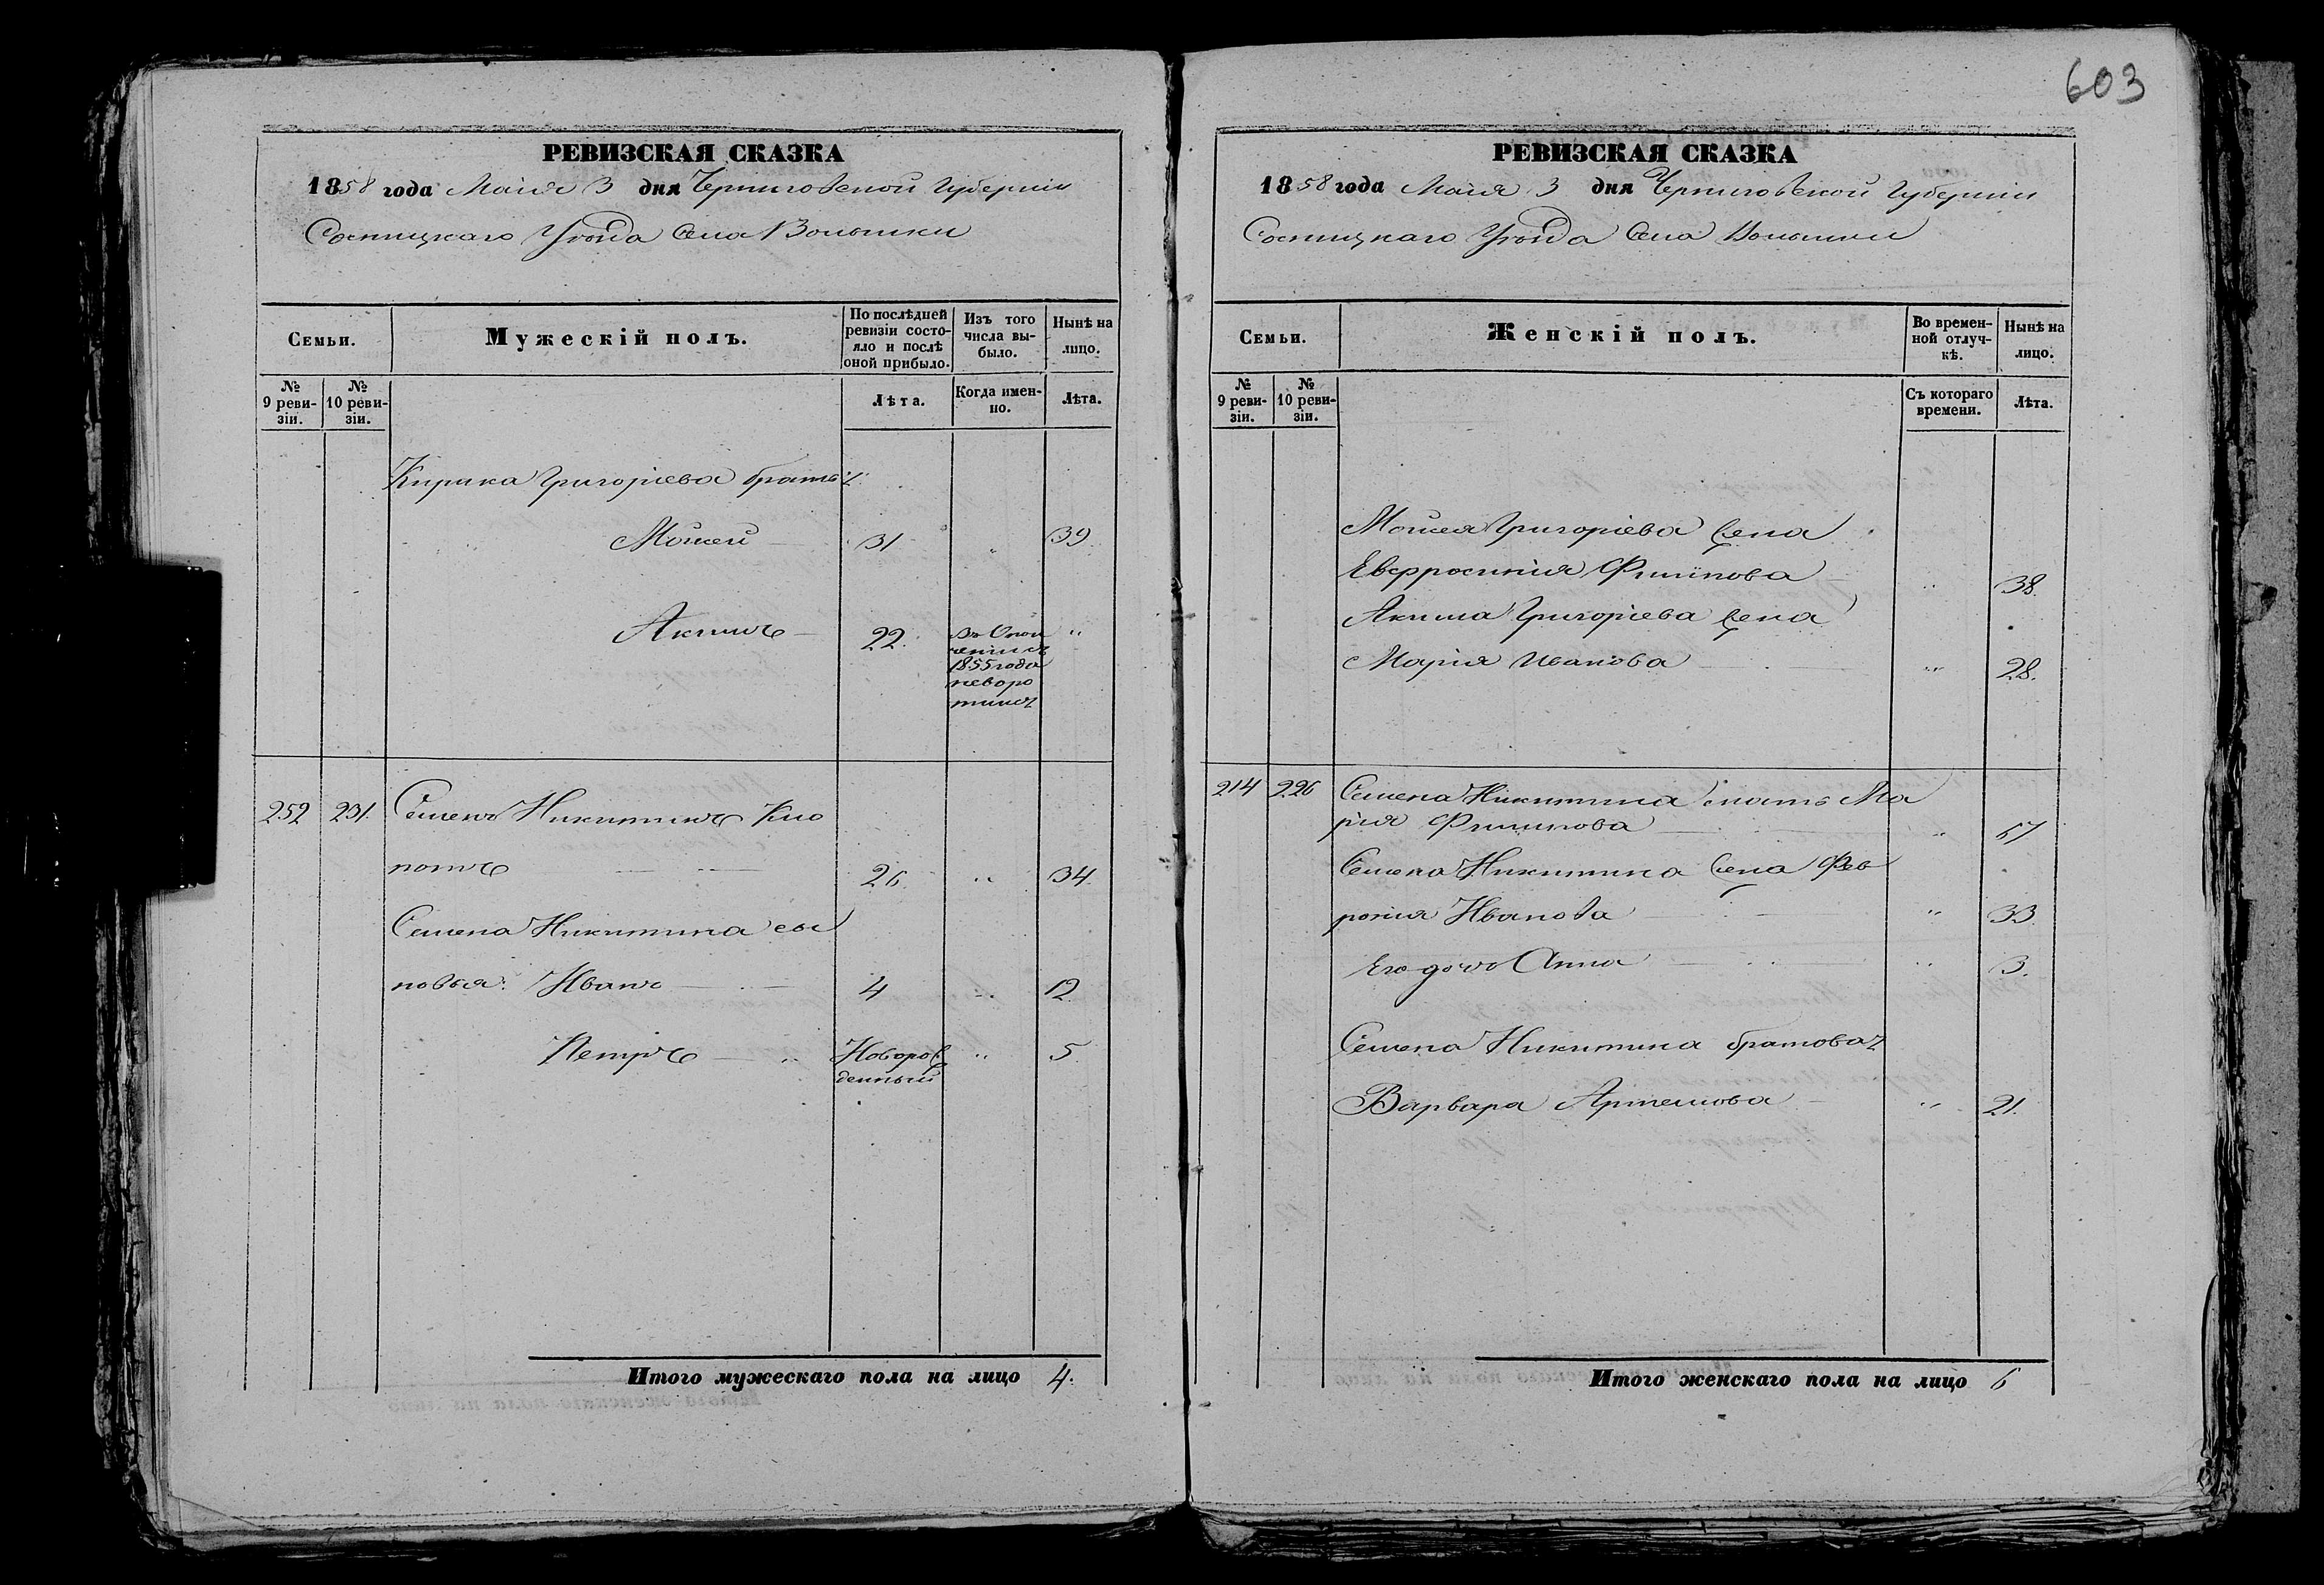 603
РЕВИЗСКАЯ СКАЗКА
1858 года Маія 3 дня Черниговской Губерніи
Сосницкаго Уѣзда Села Волынки
Семьи.
Мужескій полъ.
По послѣдней ревизіи состояло и послѣ оной прибыло.
Изъ того числа выбыло.
Нынѣ на лицо.
№ 9 ревизіи.
№ 10 ревизіи.
Лѣта.
Когда именно.
Лѣта.
Кирика Григоріева братья:
Мойсей 31 " 39
Акимъ 22. Въ Ополченіи съ 1855 года неворотился "
252 231. Семенъ Никитинъ
потъ 26 " 34
Семена Никитина сы
новья: Иванъ 4 " 12
Петръ " Новорожденный " 5
Итого мужескаго пола на лицо 4.
РЕВИЗСКАЯ СКАЗКА
1858 года Маія 3 дня Черниговской Губерніи
Сосницкаго Уѣзда Села Волынки
Семьи.
Женскій полъ.
Во временной отлучкѣ.
Нынѣ на лицо.
№ 9 ревизіи.
№ 10 ревизіи.
Съ котораго времени.
Лѣта.
Мойсея Григоріева жена
Евфросинія Филипова " 38.
Акима Григоріева жена
Марія Иванова " 28.
214 226 Семена Никитина мать Ма
рія Филипова " 57
Семена Никитина жена Фев
ронія Иванова " 33.
Его дочь Анна " 3.
Семена Никитина братовая
Варвара Артемова " 21.
Итого женскаго пола на лицо 6